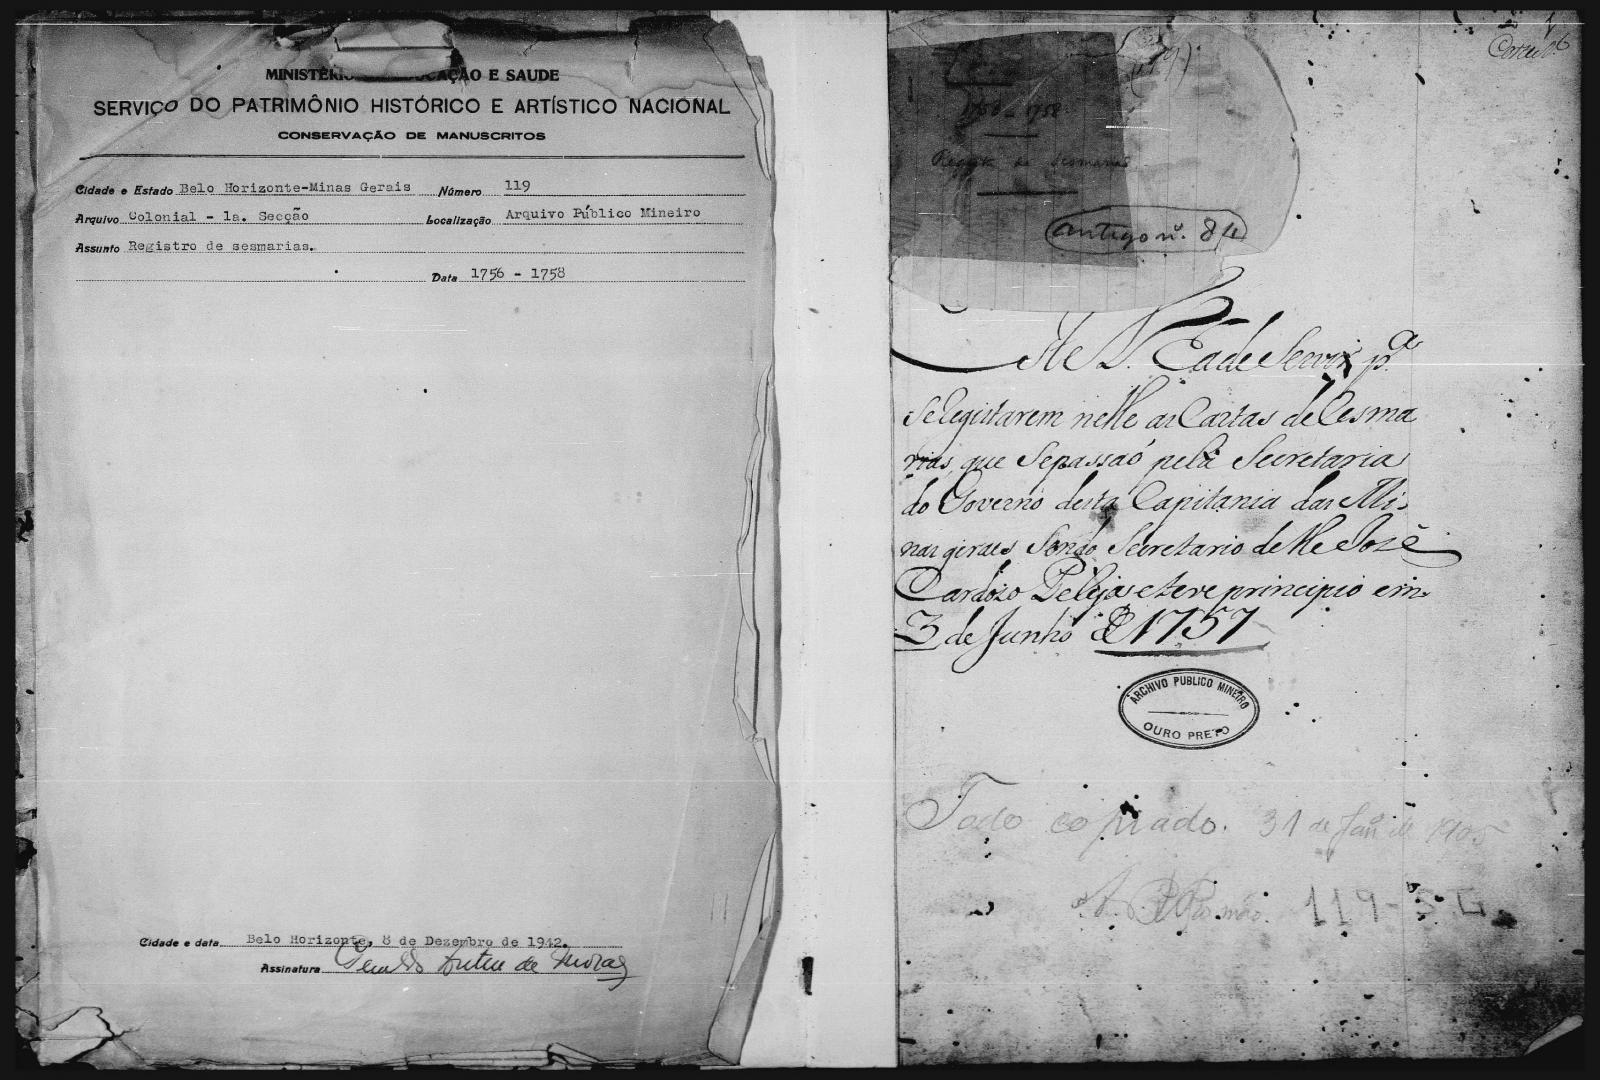 MINISTÉRIO EDUCAÇÃO E SAUDE
SERVIÇO DO PATRIMÔNIO HISTÓRICO E ARTÍSTICO NACIONAL
CONSERVAÇÃO DE MANUSCRITOS
Cidade e Estado Belo Horizonte-Minas Gerais Número 119
Arquivo Colonial - 1a. Secção Localização Arquivo Público Mineiro
Assunto Registro de sesmarias.
Data 1756 - 1758
Cidade e data Belo Horizonte, 8 de Dezembro de 1942.
Assinatura de Moraes
1756 - 1758
de sesmarias
antigo nº. 84
Este L.º hade Servir p.ª
Se Registarem nelle as Cartas de Cesma
rias, que Sepassaõ pela Secretaria
do Governo desta Capitania das Mi-
nas geraes, Sendo Secretario delle Jozè
Cardozo Peleja, e teve principio em
3 de Junho de 1757
ARCHIVO PUBLICO MINEIRO
OURO PRETO
Todo copiado. 31 de Janº de 1905
119-